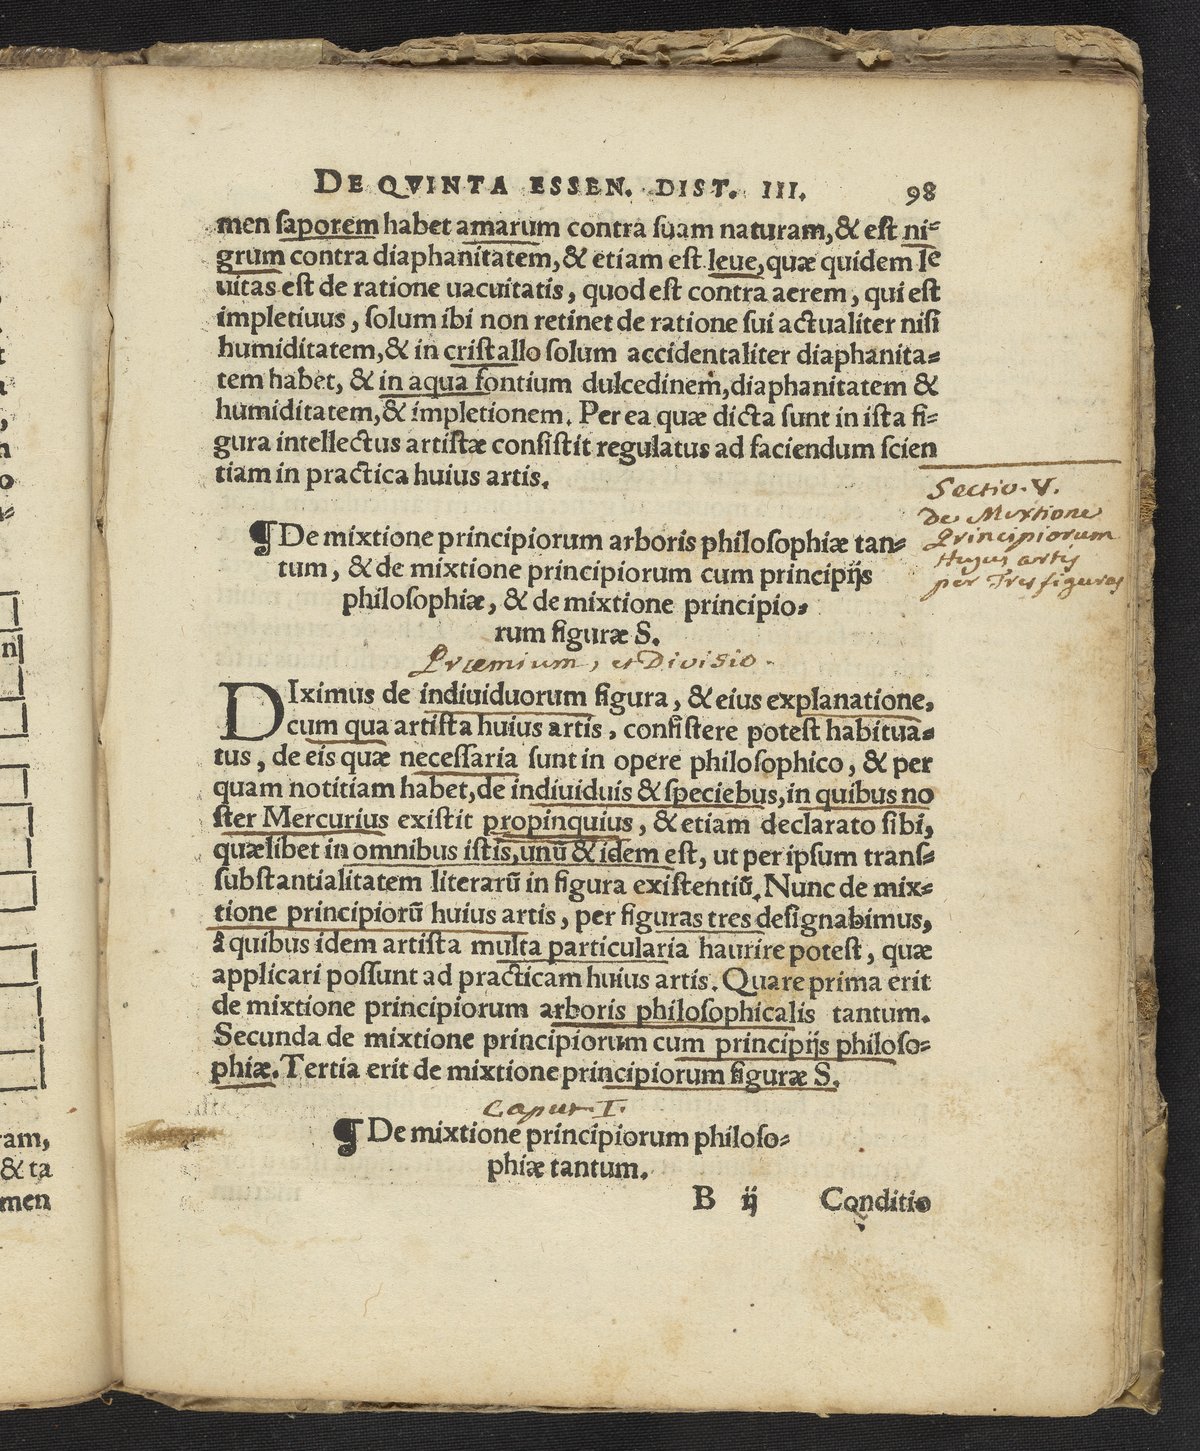 DE QVINTA ESSEN. DIST. III. 98
men ſaporem habet amarum contra ſuam naturam, & eſt ni-
grum contra diaphanitatem, & etiam eſt leue, quæ quidem le
uitas eſt de ratione uacuitatis, quod eſt contra aerem, qui eſt
impletiuus, ſolum ibi non retinet de ratione ſui actualiter niſi
humiditatem, & in criſtallo ſolum accidentaliter diaphanita-
tem habet, & in aqua fontium dulcedinem, diaphanitatem &
humiditatem, & impletionem. Per ea quæ dicta ſunt in iſta fi-
gura intellectus artiſtæ conſiſtit regulatus ad faciendum ſcien
tiam in practica huius artis.
Sectio. V.
De Mixtione
Principiorum
Hujus artis
per Tres figuras
¶ De mixtione principiorum arboris philoſophiæ tan-
tum, & de mixtione principiorum cum principijs
philoſophiæ, & de mixtione principio-
rum figuræ S.
Præmium, et Divisio.
DIximus de indiuiduorum figura, & eius explanatione,
cum qua artiſta huius artis, conſiſtere poteſt habitua-
tus, de eis quæ neceſſaria ſunt in opere philoſophico, & per
quam notitiam habet, de indiuiduis & ſpeciebus, in quibus no
ſter Mercurius exiſtit propinquius, & etiam declarato ſibi,
quælibet in omnibus iſtis, unũ & idem eſt, ut per ipſum tranſ-
ſubſtantialitatem literarũ in figura exiſtentiũ. Nunc de mix-
tione principiorũ huius artis, per figuras tres deſignabimus,
à quibus idem artiſta multa particularia haurire poteſt, quæ
applicari poſſunt ad practicam huius artis. Quare prima erit
de mixtione principiorum arboris philoſophicalis tantum.
Secunda de mixtione principiorum cum principijs philoſo-
phiæ. Tertia erit de mixtione principiorum figuræ S.
Caput. I.
¶ De mixtione principiorum philoſo-
phiæ tantum.
B ij Conditio
ram,
& ta
men